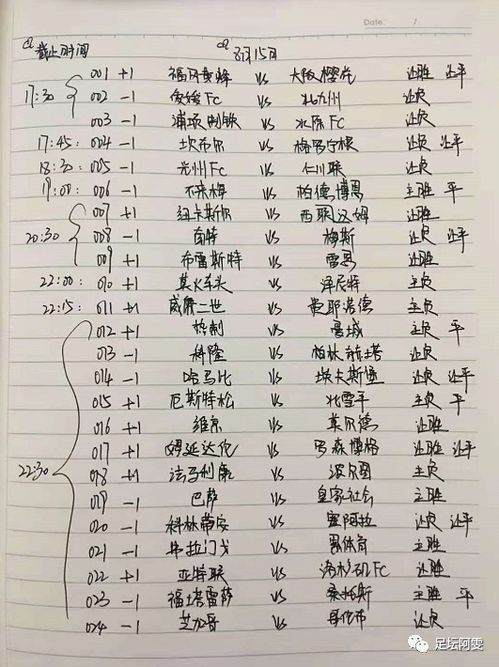 Date. /
截止时间 8月15日
17:30
001 +1 福冈黄蜂 VS 大阪樱花 让胜 让平
002 -1 FC VS 北九州 让负
003 -1 浦项制铁 VS 水原FC 让负
17:45: 004 -1 坎布尔 VS 让负 让平
18:30: 005 -1 光州FC VS 仁川联 让负
19:00: 006 -1 不来梅 VS 帕德博恩 主胜 平
20:30
007 +1 纽卡斯尔 VS 西联汉姆 让胜
008 -1 南特 VS 梅斯 让负 让平
009 +1 布雷斯特 VS 雷恩 让胜
22:00: 010 +1 莫火车头 VS 泽尼特 主负
22:15: 011 +1 威廉二世 VS 费耶诺德 主负
22:30
012 +1 热刺 VS 曼城 主负 平
013 -1 科隆 VS 柏林赫塔 让负
014 -1 哈马比 VS 埃夫斯堡 让负 让平
015 +1 厄斯特松 VS 北雪平 主负 平
016 +1 维京 VS 莫尔德 让胜
017 +1 姆延达伦 VS 罗森博格 让胜 让平
018 +1 法马利康 VS 波尔图 主负
019 -1 巴萨 VS 皇家社会 主胜
020 -1 科林蒂安 VS 塞阿拉 让负 让平
021 -1 VS 黑体育 主胜
022 +1 亚特联 VS 洛杉矶FC 让胜
023 -1 福塔雷萨 VS 桑托斯 主胜 平
024 -1 芝加哥 VS 哥伦布 让负
足坛阿雯